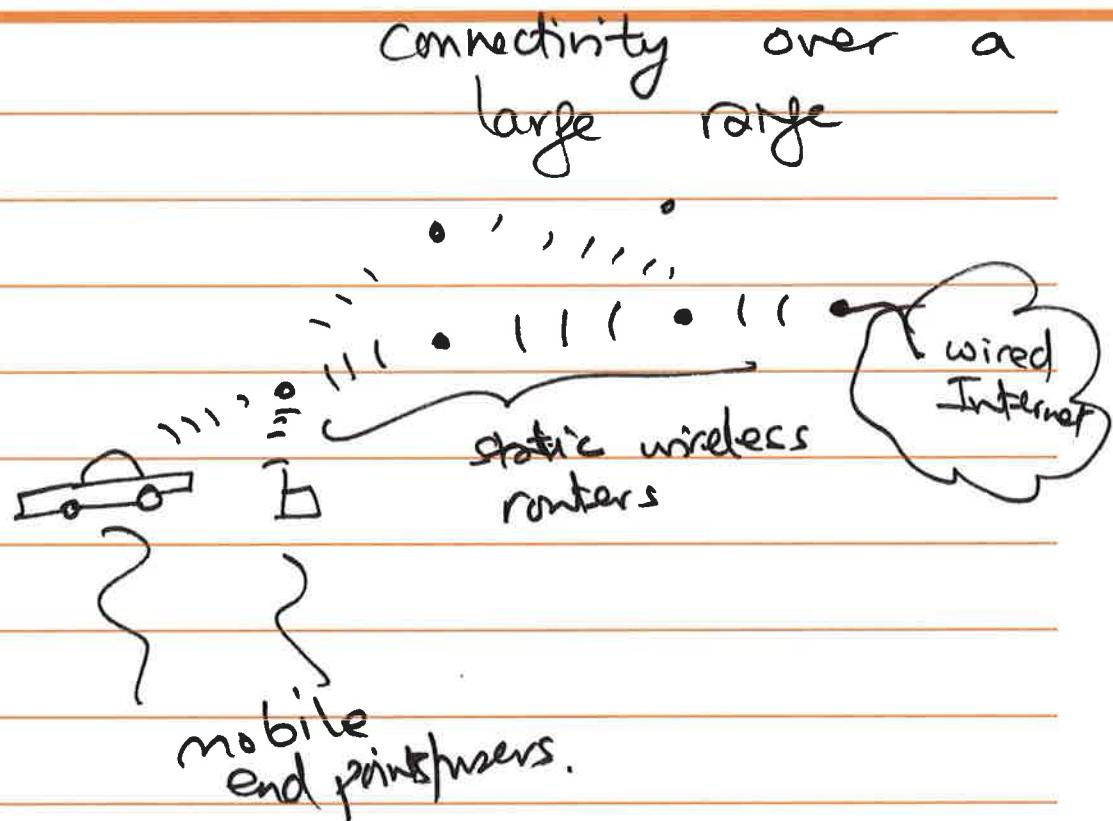 Connectivity over a
large range
wired
Internet
static wireless
routers
mobile
end points/users.